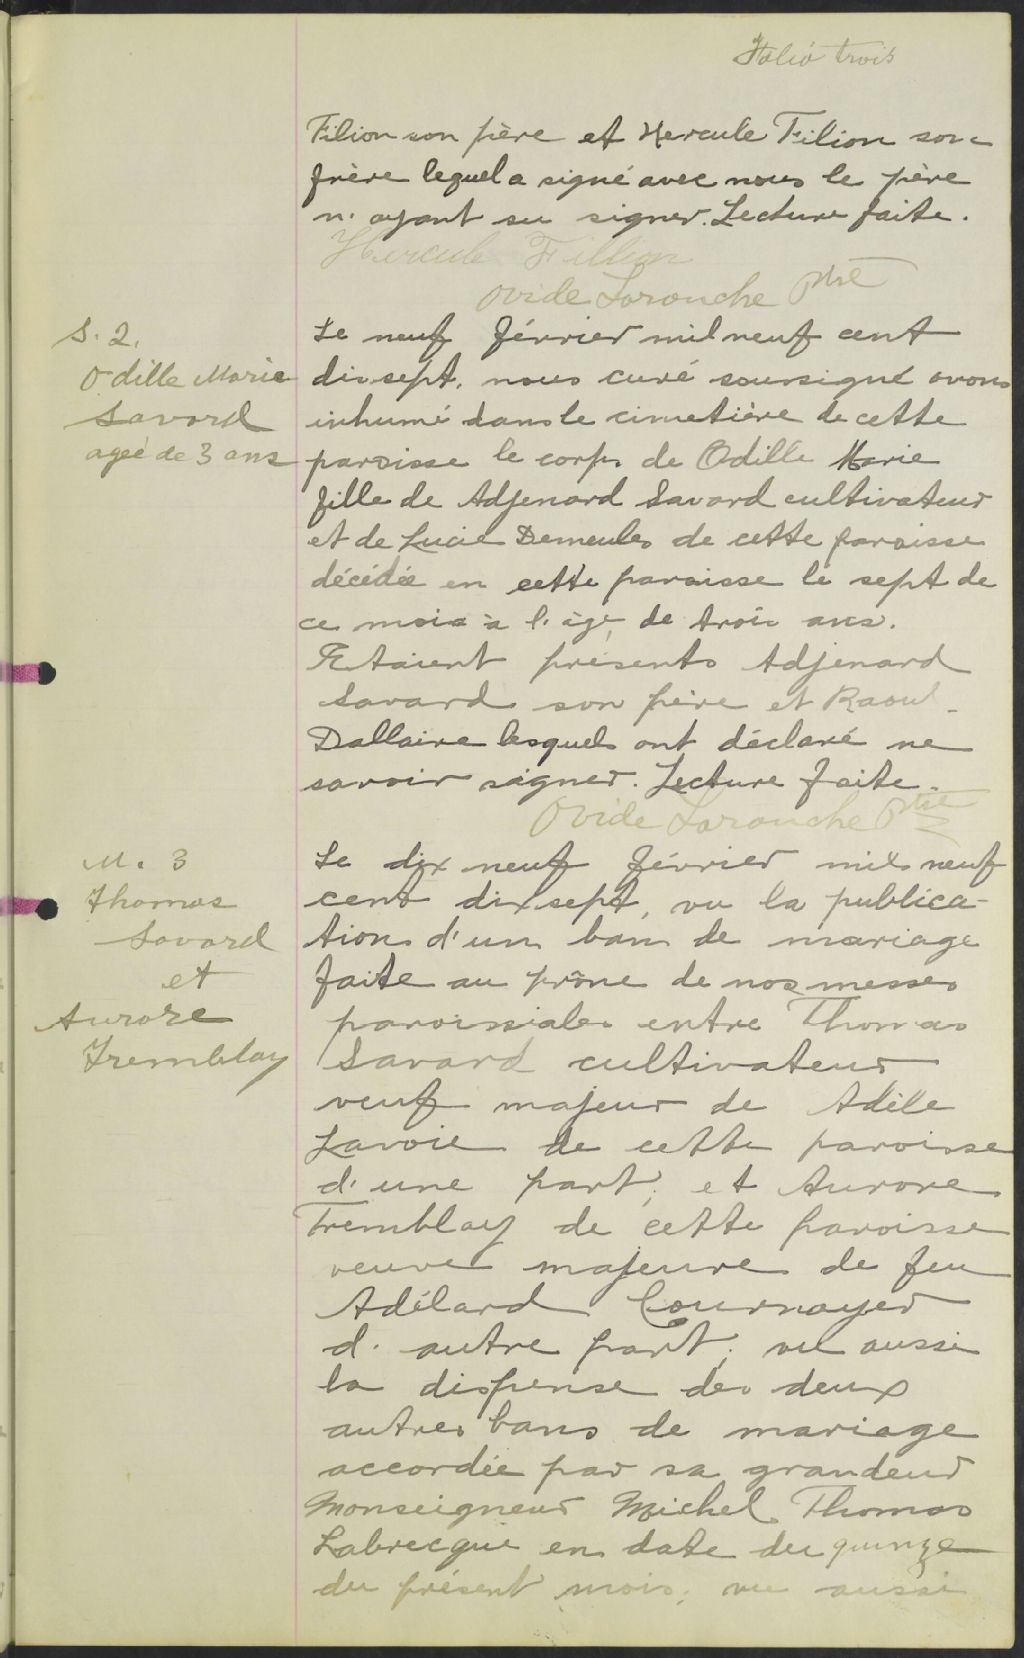 Folio trois
Filion son père et Hercule Filion son
frère lequel a signé avec nous le père
n'ayant su signer. Lecture faite.
Hercule Fillion
Ovide Larouche Ptre
S. 2.
Odille Marie
Savard
agée de 3 ans
Le neuf février mil neuf cent
dix sept, nous curé soussigné avons
inhumé dans le cimetière de cette
paroisse le corps de Odille Marie
fille de Adjenard Savard cultivateur
et de Lucie Demeules de cette paroisse
décédée en cette paroisse le sept de
ce mois à l'âge de trois ans.
Etaient présents Adjenard
Savard son père et Raoul
Dallaire lesquels ont déclaré ne
savoir signer. Lecture faite.
Ovide Larouche Ptre
M. 3
Thomas
Savard
et
Aurore
Tremblay
Le dix neuf février mil neuf
cent dix sept, vu la publica-
tion d'un ban de mariage
faite au prône de nos messes
paroissiales entre Thomas
Savard cultivateur
veuf majeur de Adèle
Lavoie de cette paroisse
d'une part; et Aurore
Tremblay de cette paroisse
veuve majeure de feu
Adélard Cournoyer
d'autre part; vu aussi
la dispense des deux
autres bans de mariage
accordée par sa grandeur
Monseigneur Michel Thomas
Labrecque en date du quinze
du présent mois; vu aussi